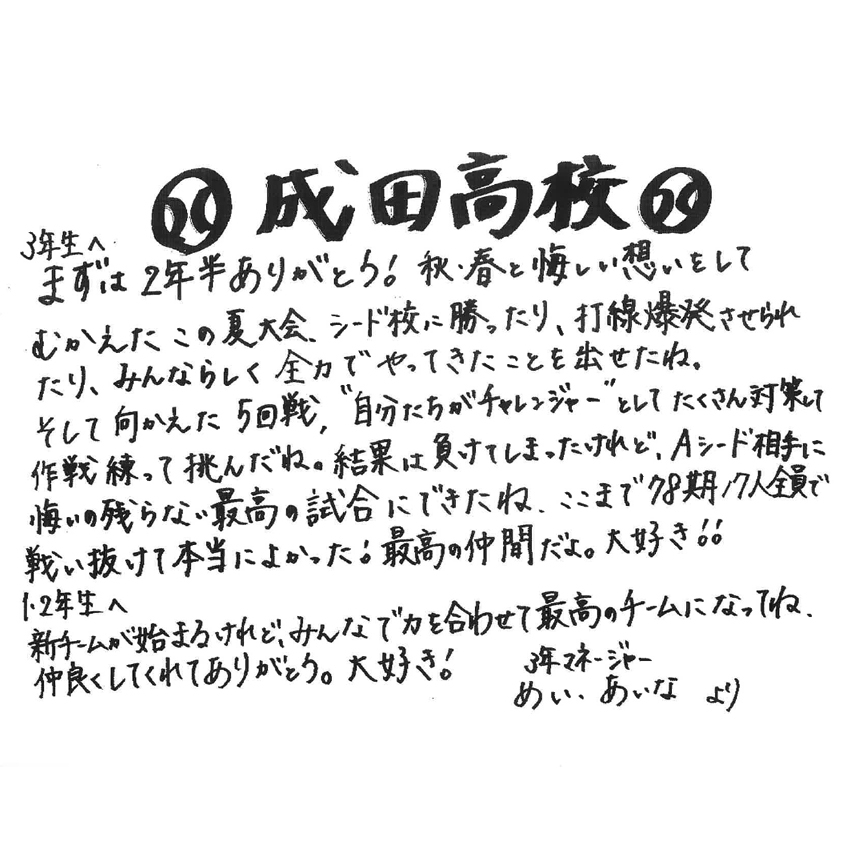 成田高校
3年生へ
まずは2年半ありがとう! 秋・春と悔しい想いをして
むかえたこの夏大会、シード校に勝ったり、打線爆発させられ
たり、みんならしく全力でやってきたことを出せたね。
そして向かえた5回戦, "自分たちがチャレンジャー"としてたくさん対策して
作戦練って挑んだね。結果は負けてしまったけれど、Aシード相手に
悔いの残らない最高の試合にできたね、ここまで78期17人全員で
戦い抜けて本当によかった! 最高の仲間だよ。大好き!!
1・2年生へ
新チームが始まるけれど、みんなで力を合わせて最高のチームになってね、
仲良くしてくれてありがとう。大好き!
3年マネージャー
めい、あいな より